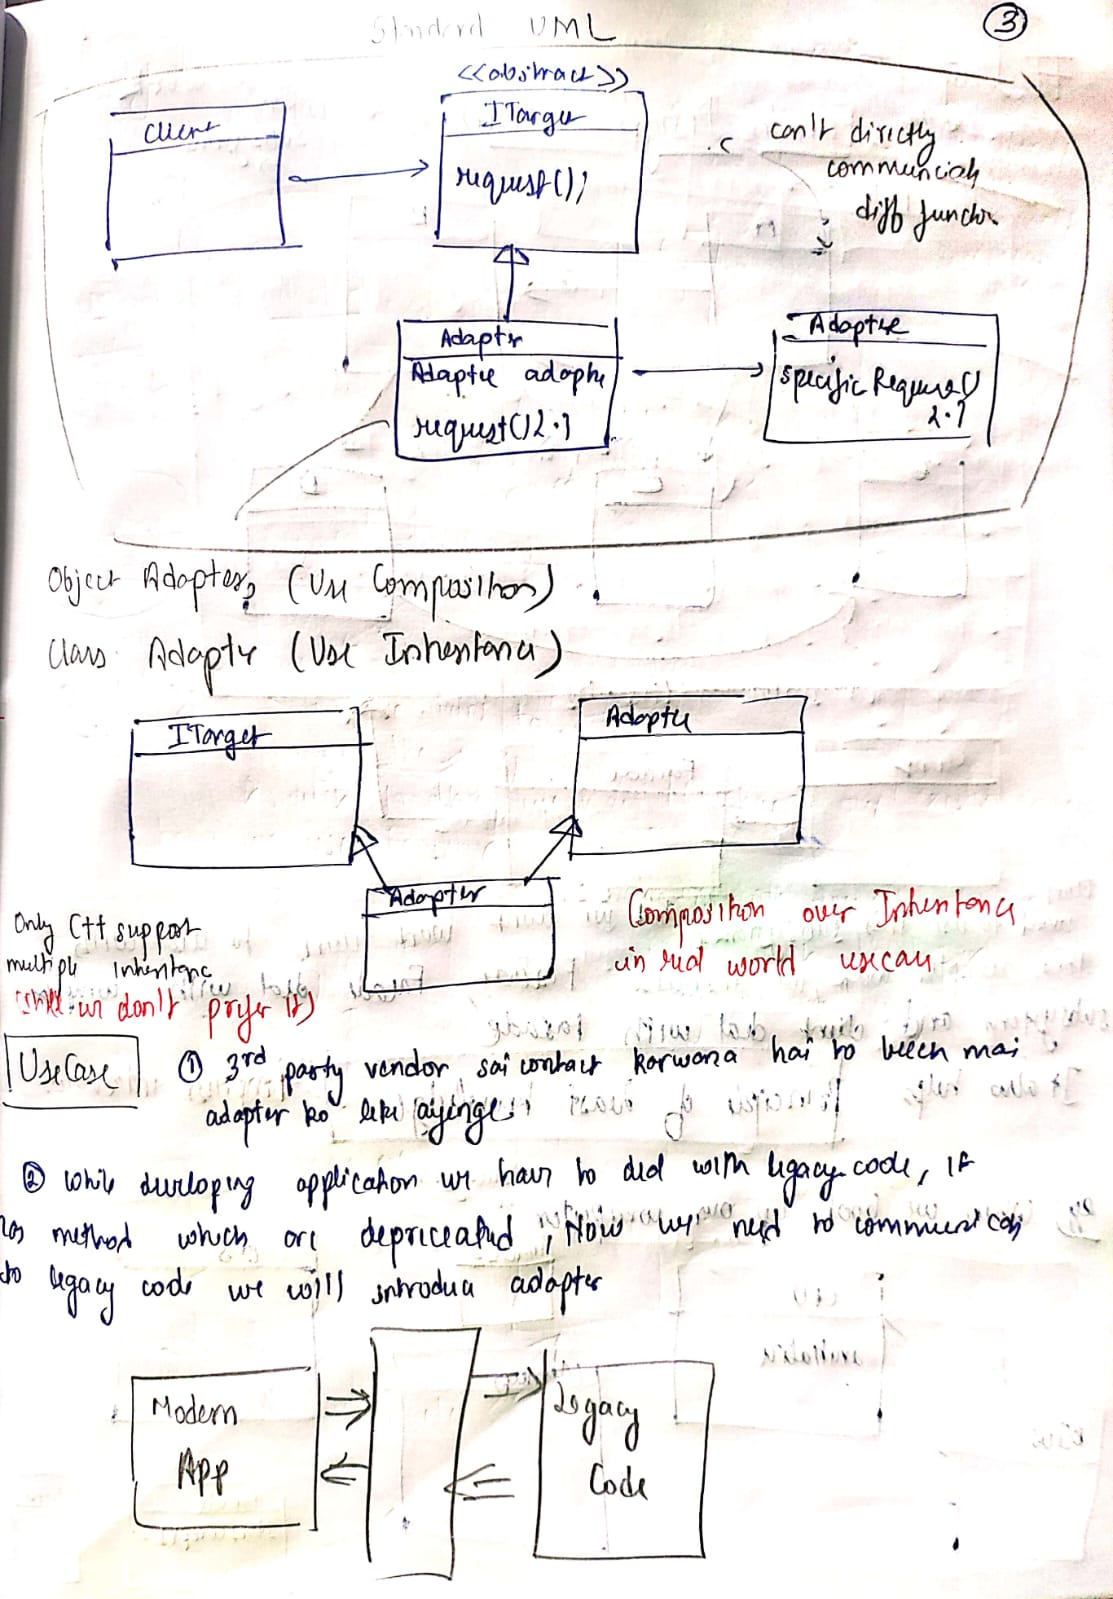 Standard UML
3
<<abstract>>
Client
ITarget
request();
can't directly
communicate
diff function
Adapter
Adaptee adaptee
request(){.}
Adaptee
specificRequest()
{.}
Object Adapter, (Use Composition)
Class Adapter (Use Inheritance)
ITarget
Adaptee
Adapter
Only C++ support
multiple Inheritance
(still we don't prefer it)
Composition over Inheritance
in real world usecase
UseCase
① 3rd party vendor sai contact karwana hai to beech mai
adapter ko leke ayinge
② While developing application we have to deal with legacy code, it
has method which are depriceated, Now we need to communicate
to legacy code we will introduce adapter
Modern
App
Legacy
Code